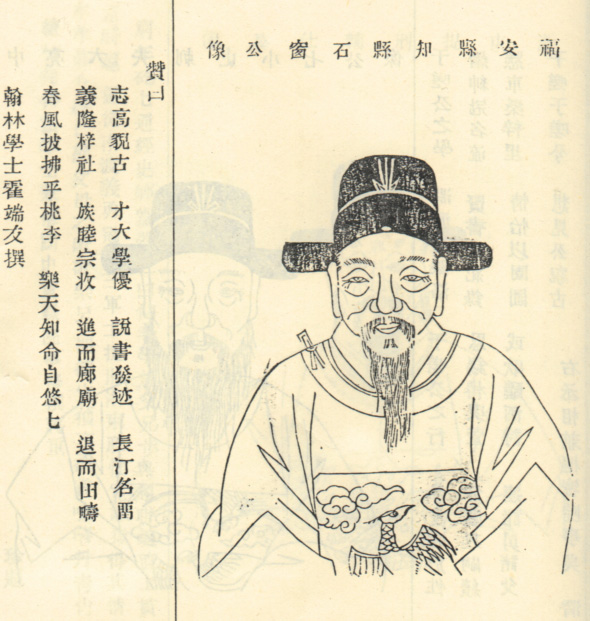 福安縣知縣石窗公像
贊曰
志高貌古 才大學優 說書發迹 長汀名畱
義隆梓社 族睦宗收 進而廊廟 退而田疇
春風披拂乎桃李 樂天知命自悠匕
翰林學士霍端友撰